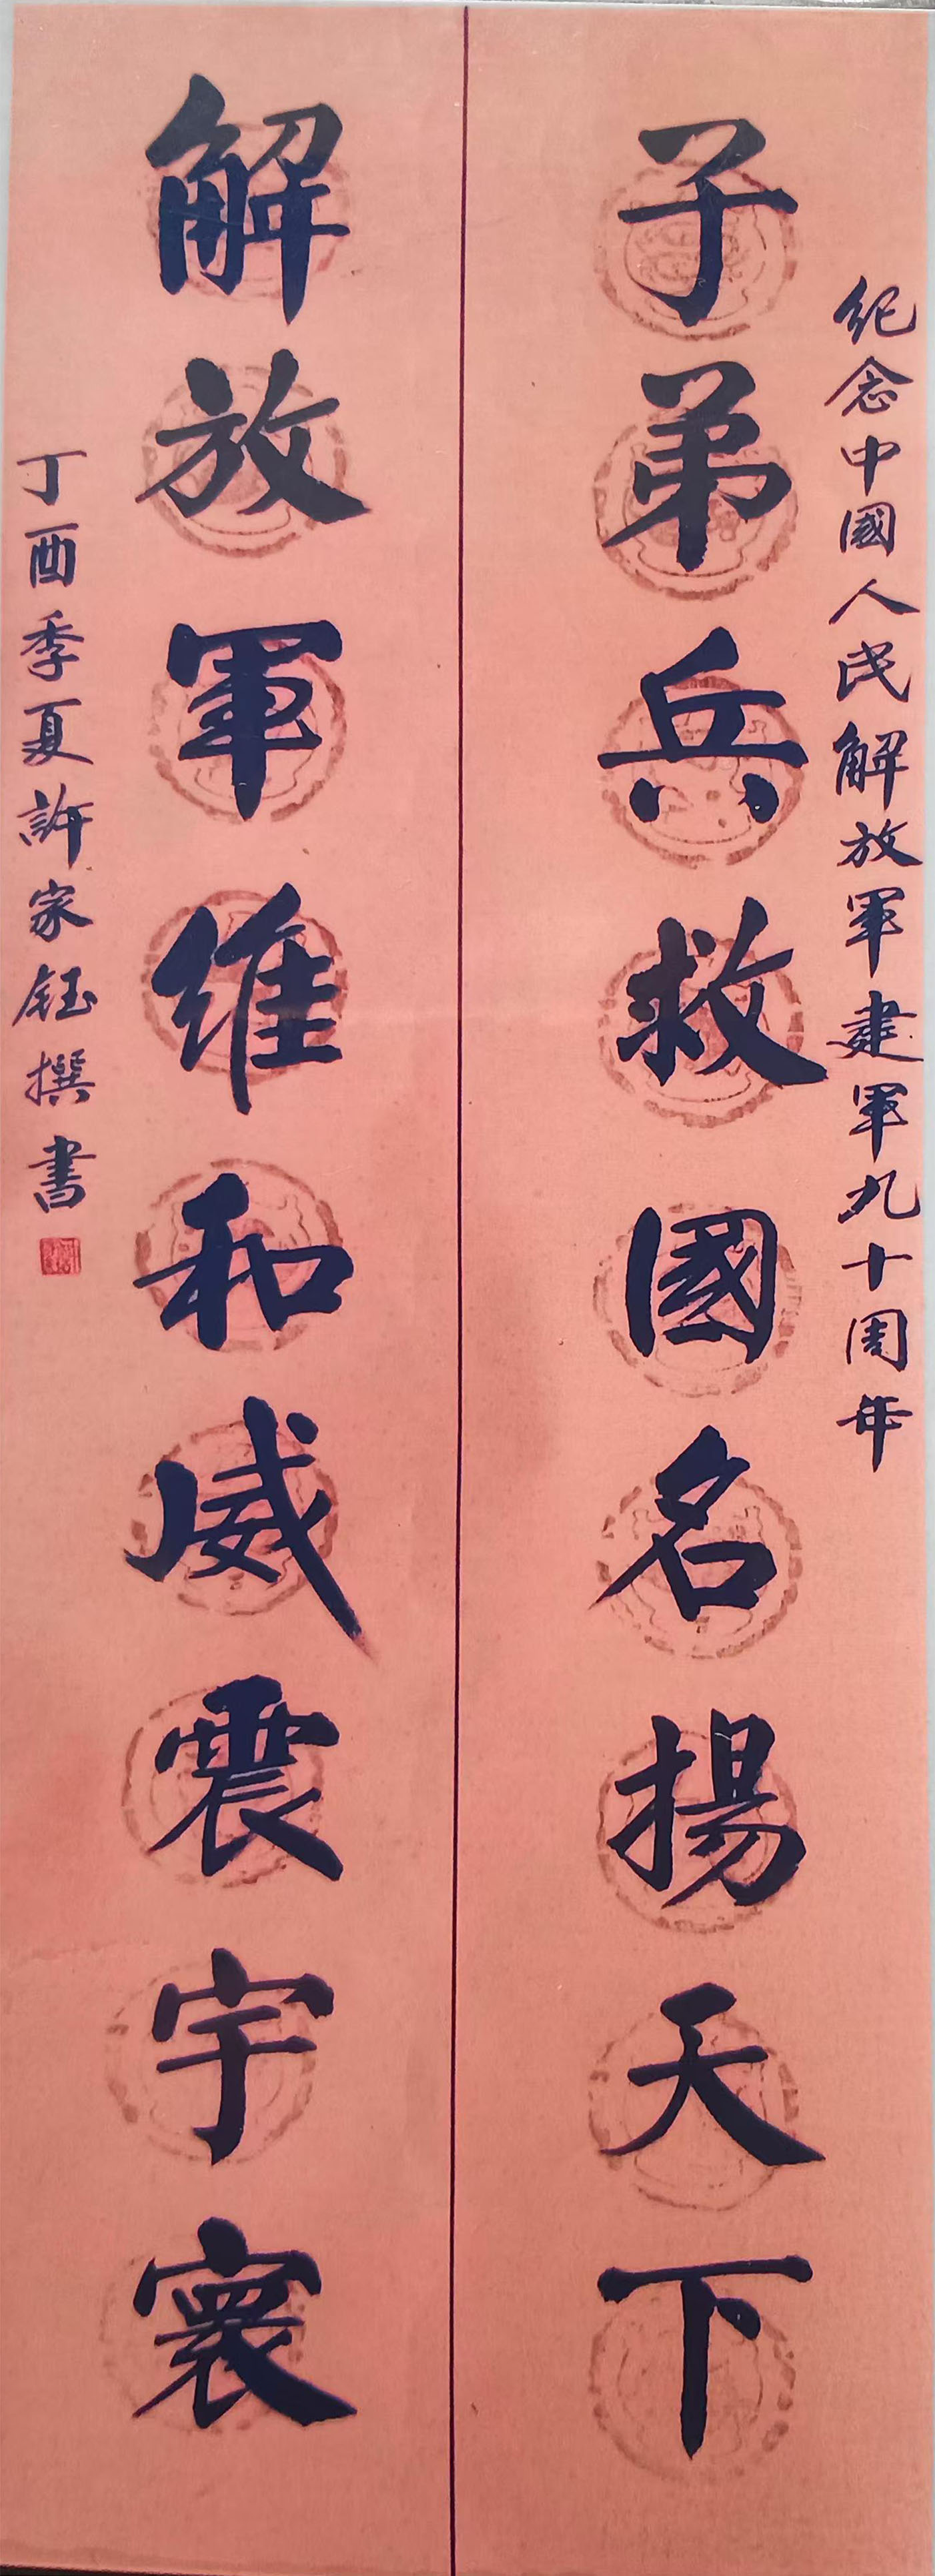 紀念中國人民解放軍建軍九十周年
子弟兵救國名揚天下
解放軍維和威震宇寰
丁酉季夏許家鈺撰書